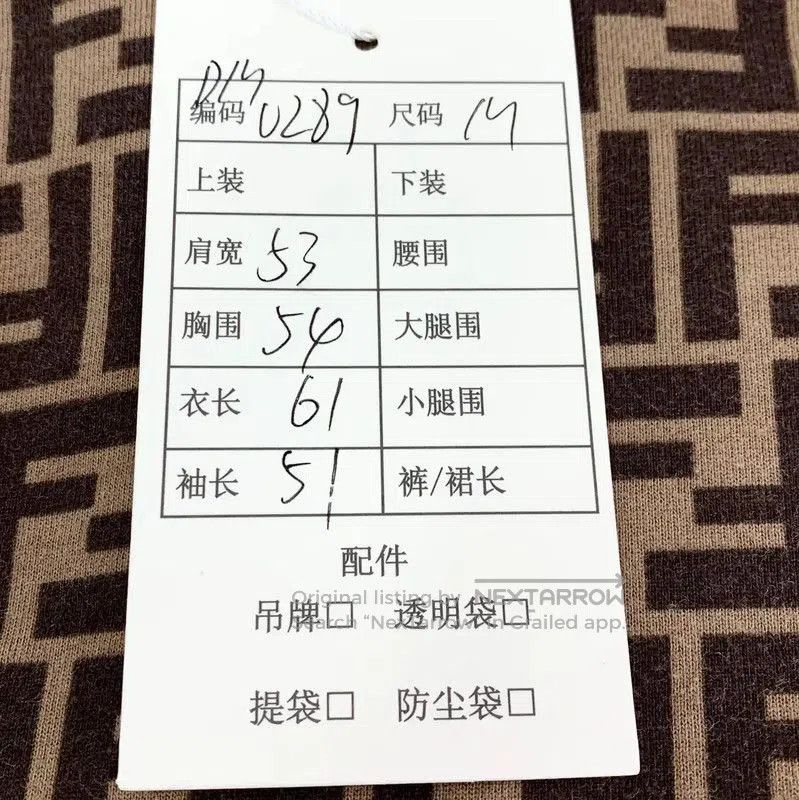 编码 0289 尺码
上装 下装
肩宽 53 腰围
胸围 54 大腿围
衣长 61 小腿围
袖长 51 裤/裙长
配件
Original listing by NEXTARROW
吊牌□ 透明袋□
Search “NextArrow” in Grailed app.
提袋□ 防尘袋□